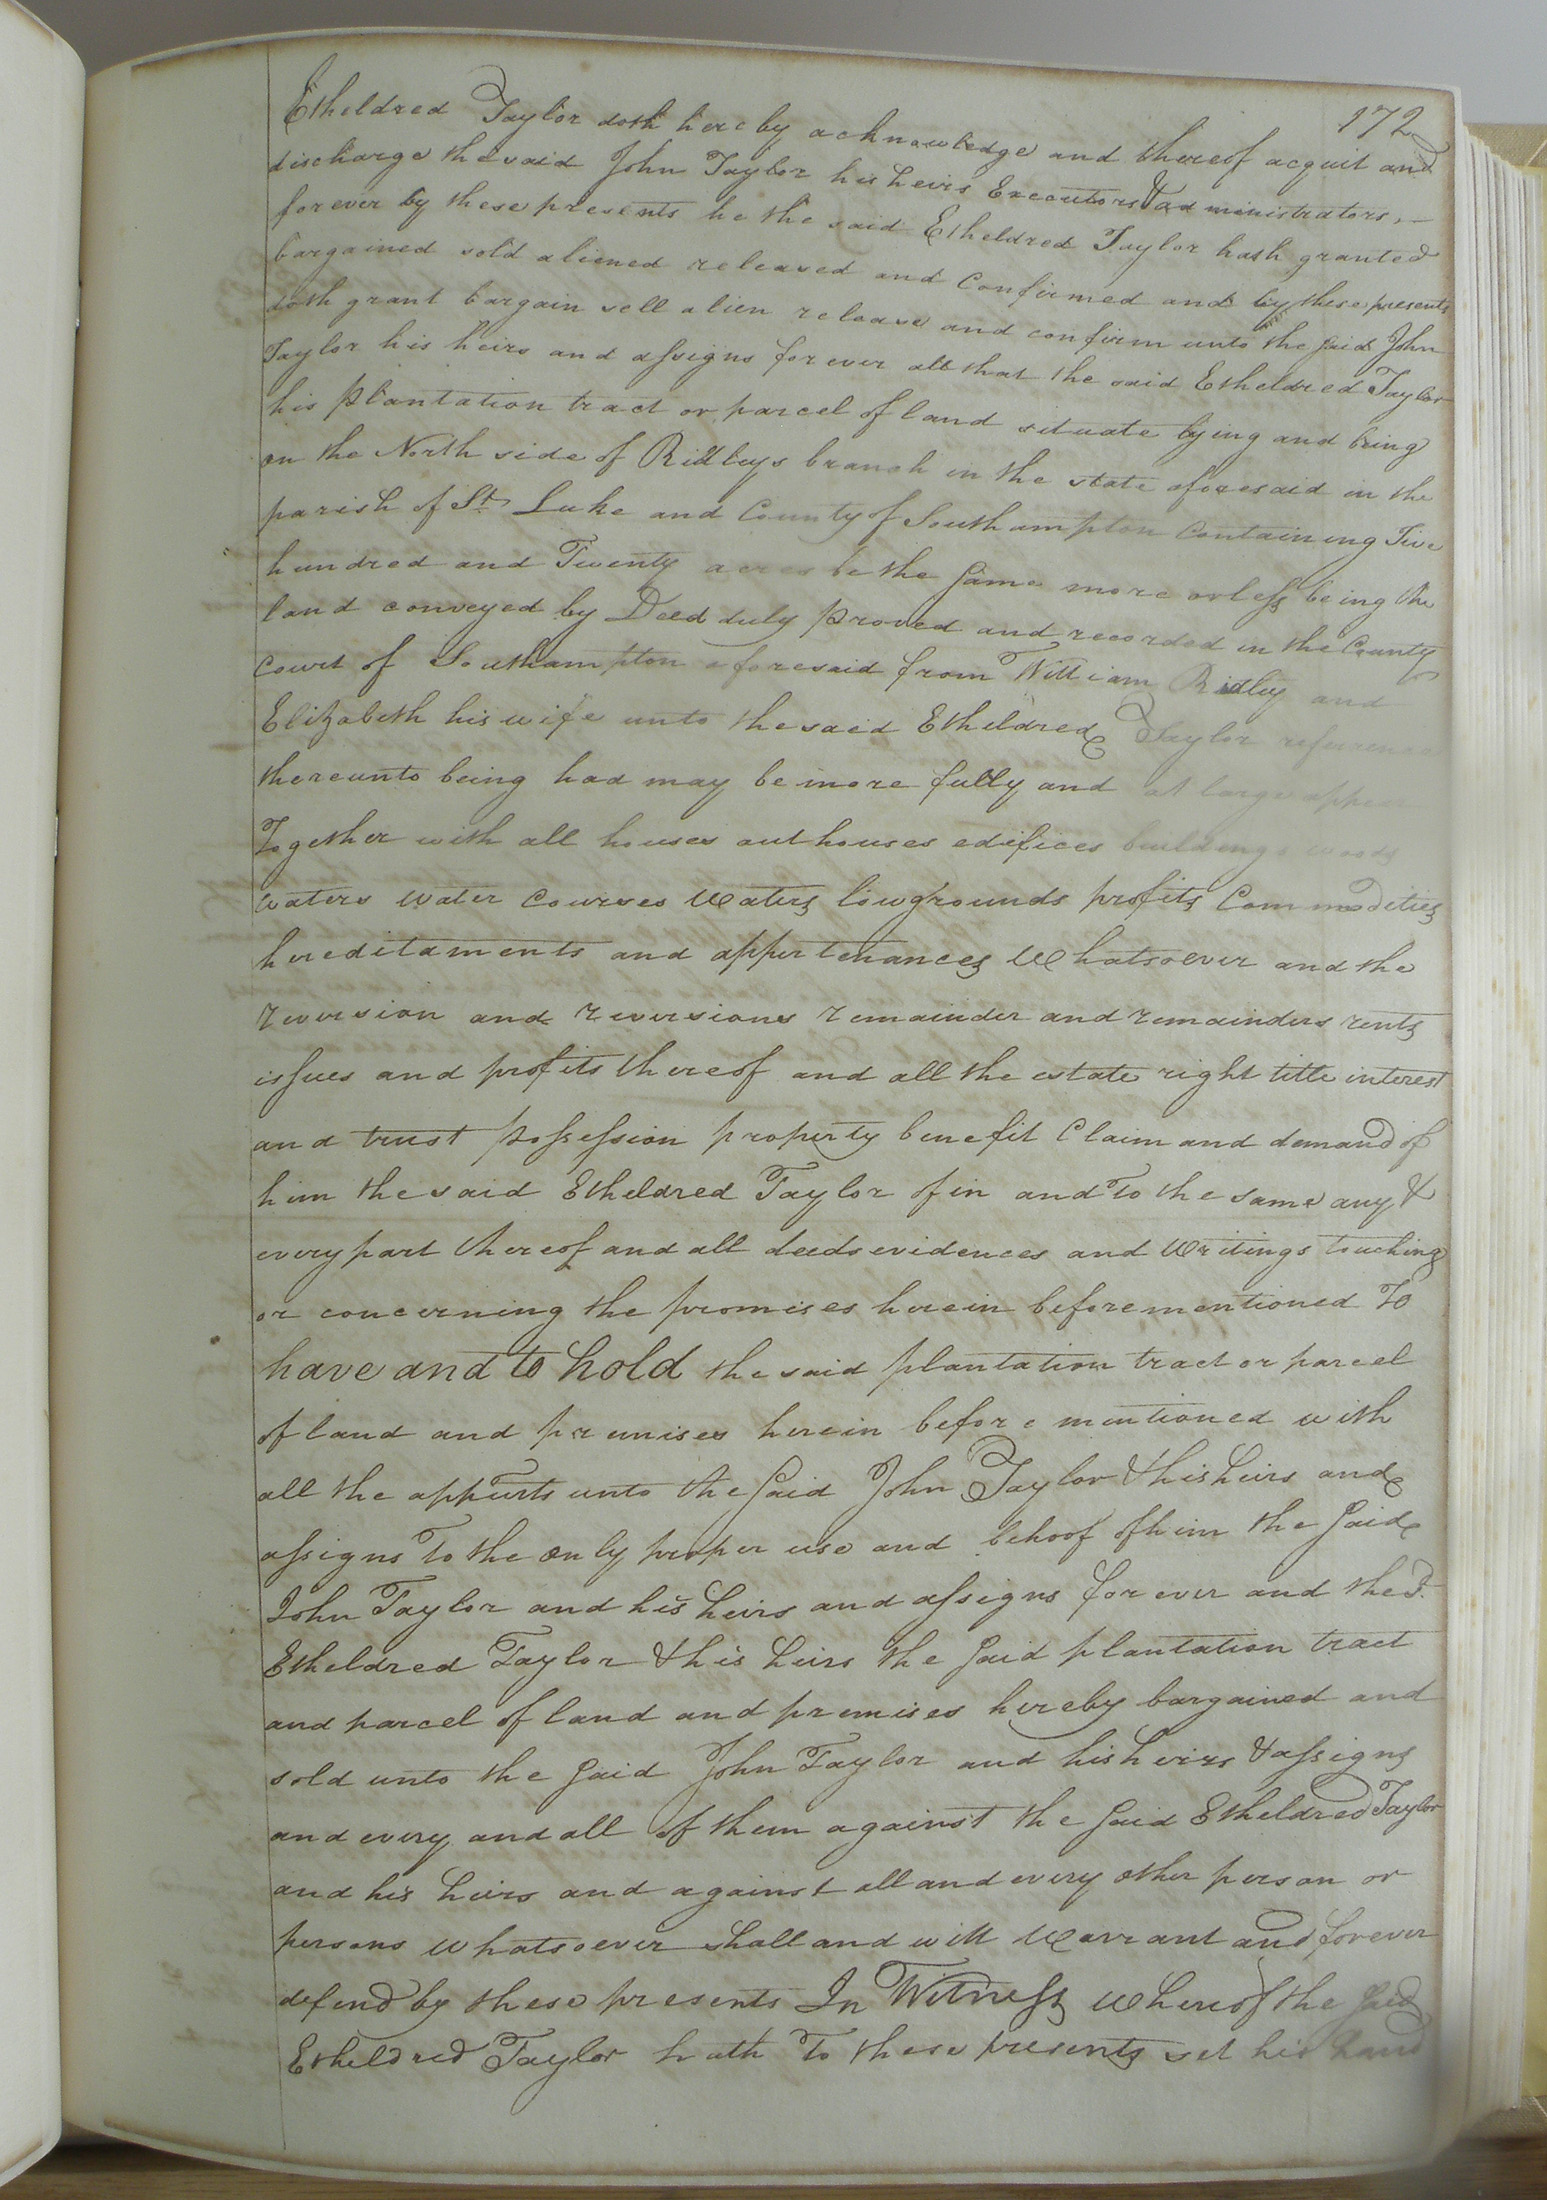 172
Etheldred Taylor doth hereby acknowledge and thereof acquit and
discharge the said John Taylor his heirs Executors & administrators,
forever by these presents he the said Etheldred Taylor hath granted
bargained sold aliened released and confirmed and by these presents
doth grant bargain sell alien release and confirm unto the said John
Taylor his heirs and assigns forever all that the said Etheldred Taylor
his plantation tract or parcel of land situate lying and being
on the North side of Ridleys branch in the state aforesaid in the
parish of St. Luke and County of Southampton Containing Five
hundred and Twenty acres be the same more or less being the
land conveyed by Deed duly proved and recorded in the County
Court of Southampton aforesaid from William Ridley and
Elizabeth his wife unto the said Etheldred Taylor reference
thereunto being had may be more fully and at large appear
Together with all houses outhouses edifices buildings woods
waters water Courses Waters lowgrounds profits Commodities
hereditaments and appertenances Whatsoever and the
reversion and reversions remainder and remainders rents
issues and profits thereof and all the estate right title interest
and trust possession property benefit Claim and demand of
him the said Etheldred Taylor of in and To the same any &
every part thereof and all deeds evidences and Writings touching
or concerning the promises herein before mentioned To
have and to hold the said plantation tract or parcel
of land and premises herein before mentioned with
all the appurts unto the said John Taylor & his heirs and
assigns To the only proper use and behoof of him the said
John Taylor and his heirs and assigns forever and the sd.
Etheldred Taylor & his heirs the said plantation tract
and parcel of land and premises hereby bargained and
sold unto the said John Taylor and his heirs & assigns
and every and all of them against the said Etheldred Taylor
and his heirs and against all and every other person or
persons whatsoever shall and will Warrant and forever
defend by these presents In Witness whereof the said
Etheldred Taylor hath To these presents set his hand